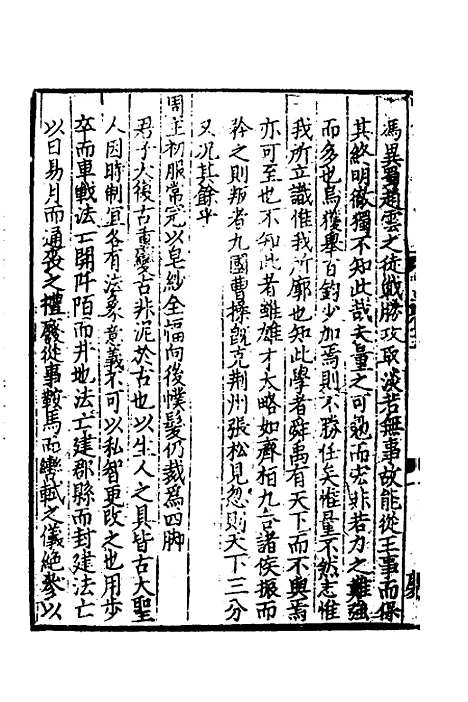 馮異蜀趙雲之徒戰勝攻取淡若無事故能從王事而保
其終明徹獨不知此哉夫量之可勉而宏非若力之難強
而多也烏獲舉百鈞少加焉則不勝任矣惟量不然志惟
我所立識惟我所廓也知此學者舜禹有天下而不與焉
亦可至也不知此者雖雄才大略如齊桓九合諸侯振而
矜之則叛者九國曹操既克荆州張松見忽則天下三分
又况其餘乎
周主初服常冠以皂紗全幅向後幞髮仍裁為四脚
男子大復古重變古非泥於古也以生人之具皆古大聖
人因時制宜各有法象意義不可以私智更改之也用步
卒而車戰法亡開阡陌而井地法亡建郡縣而封建法亡
以日易月而通喪之禮廢從事鞍馬而轡軾之儀絶參以